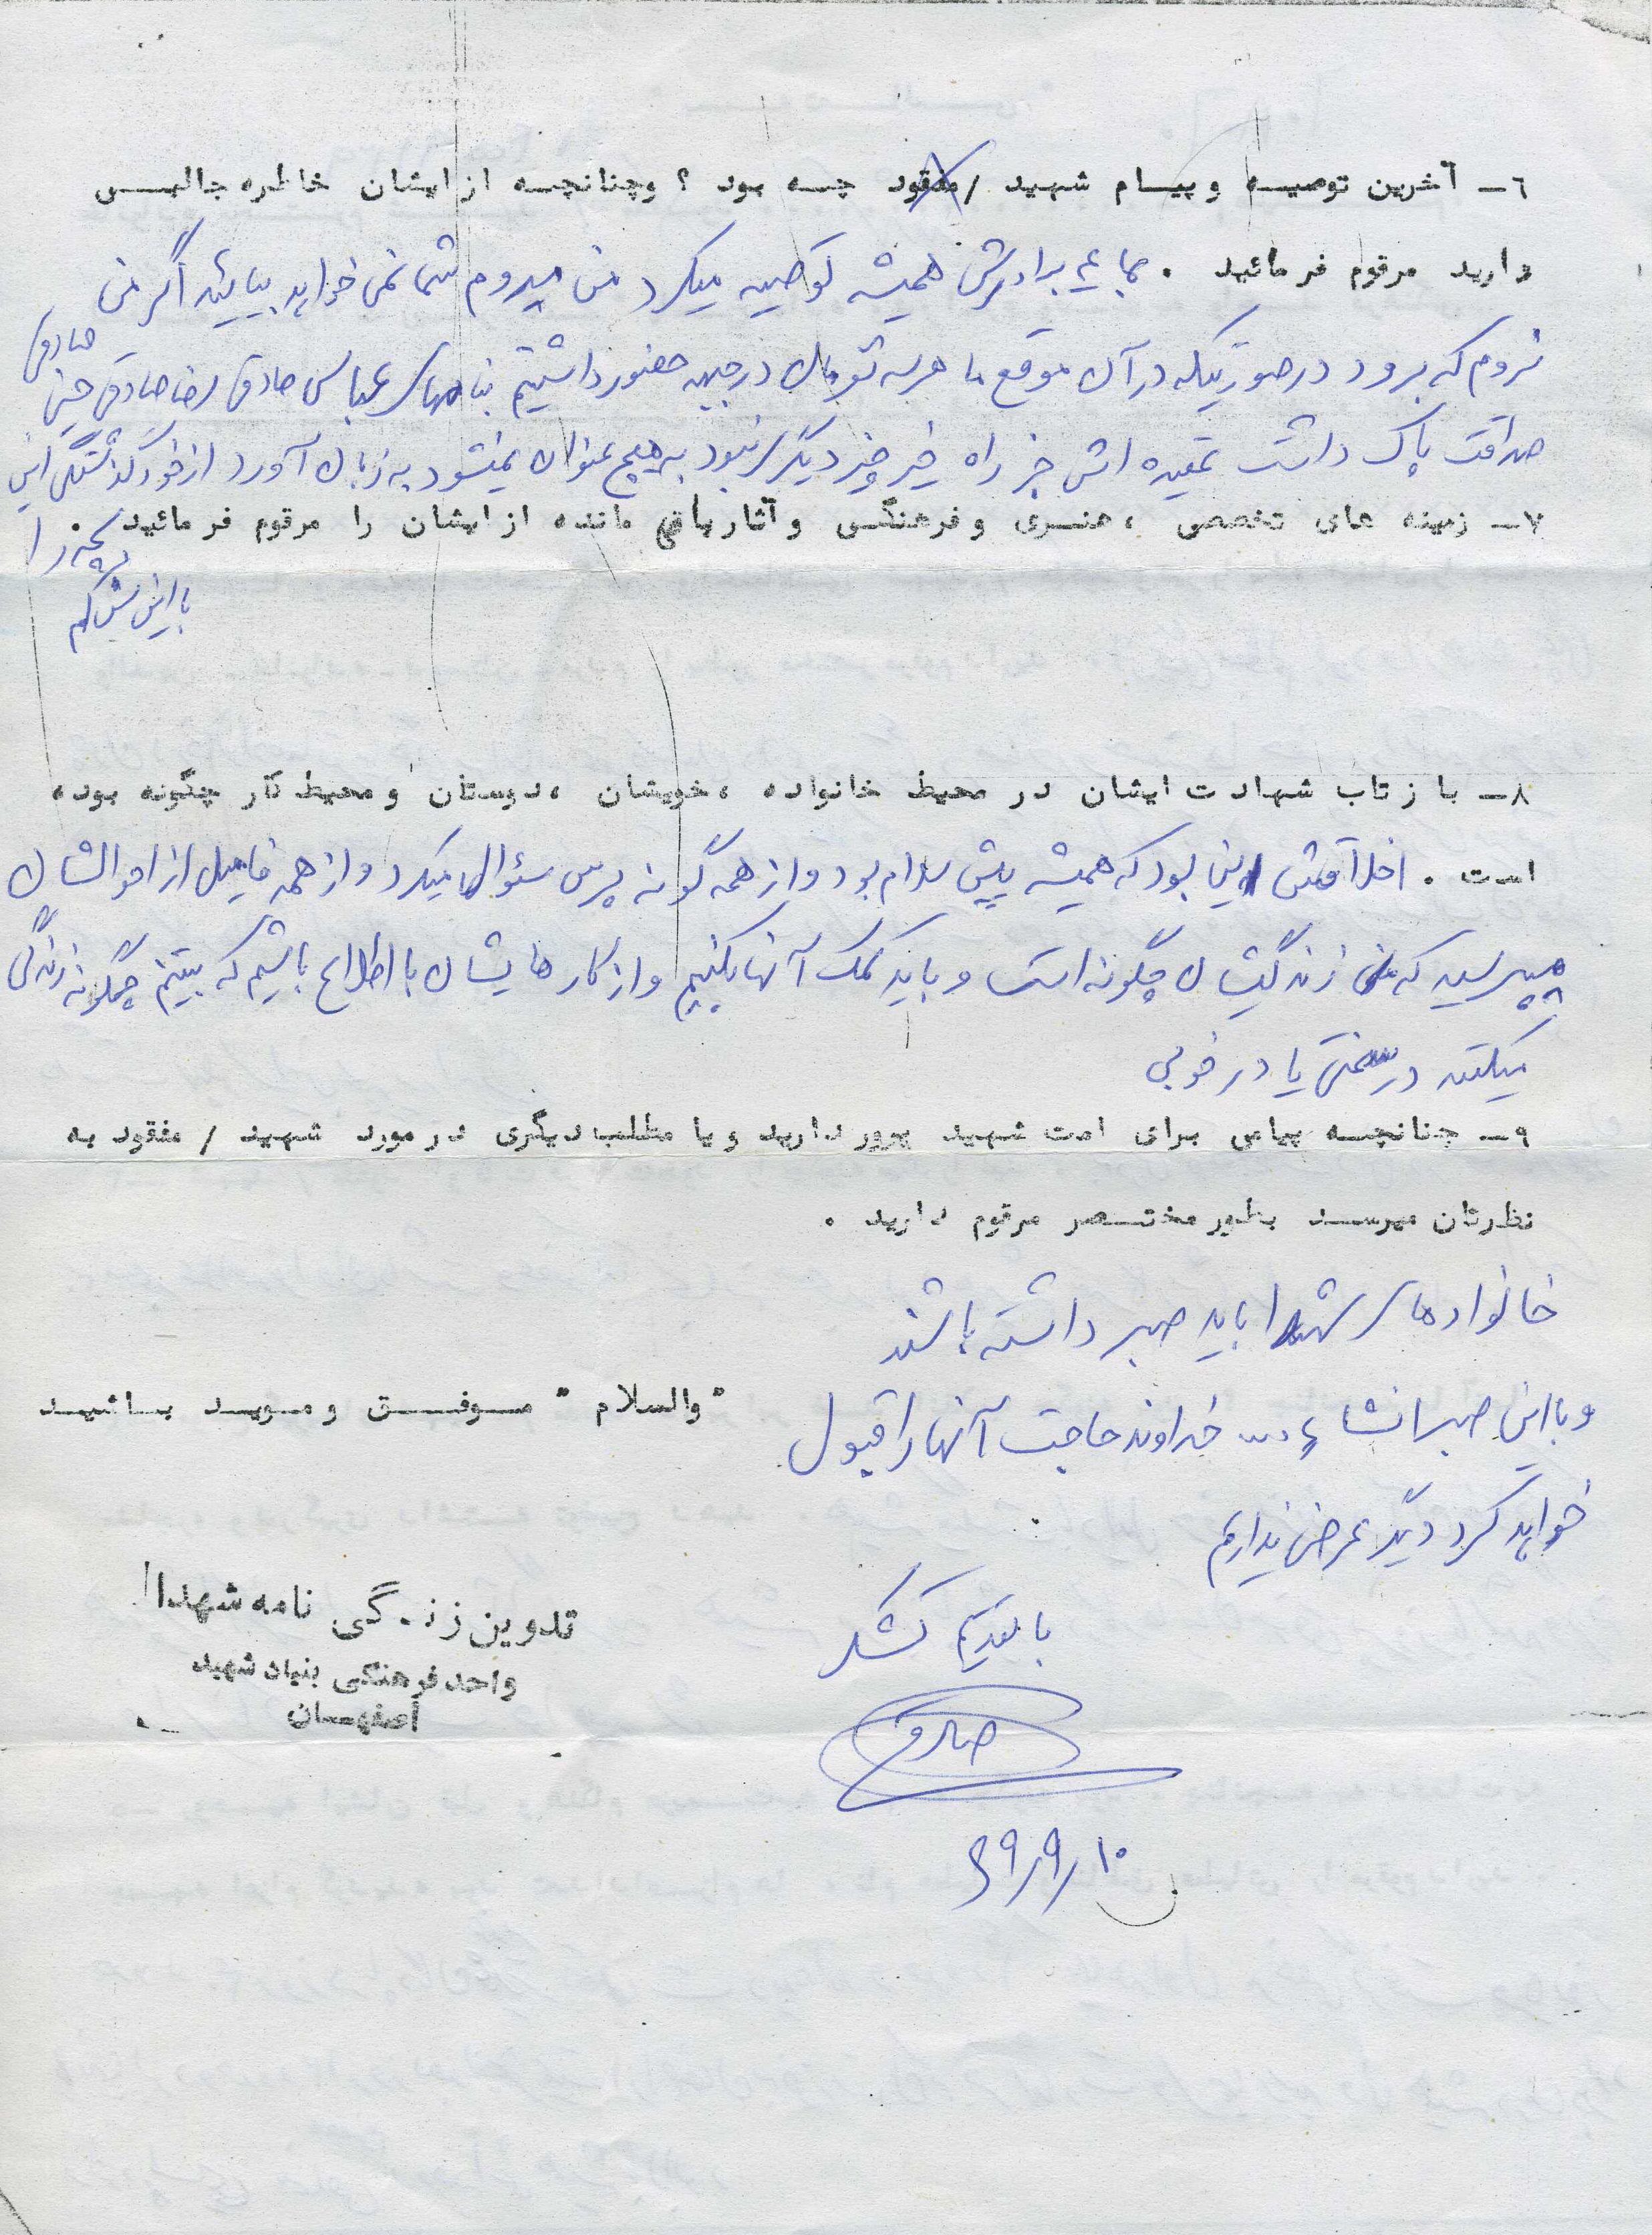 ٦ـ آخرین توصیه و پیام شهید / مفقود چه بود ؟ وچنانچه از ایشان خاطره جالبی
دارید مرقوم فرمائید . بما برادرش همیشه توصیه میکرد من میروم شما نمی‌خواهد بیائید اگر من
نروم که برود درصورتیکه در آن موقع ما هر سه نفرمان در جبهه حضور داشتیم بنامهای عباس صادقی رضا صادقی حسن صادقی
صداقت پاک داشت عقیده اش جز راه خیر چیز دیگری نبود به هیچ عنوان نمیشود به زبان آورد از خود گذشتگی این
٧ـ زمینه های تخصصی ، هنری و فرهنگی و آثار باقی مانده از ایشان را مرقوم فرمائید .
بچه را
با این سن کم
٨ـ بازتاب شهادت ایشان در محیط خانواده ، خویشان ، دوستان و محیط کار چگونه بوده
است . اخلاقش این بود که همیشه پیش سلام بود و از همه گونه پرس سئوال میکرد و از همه فامیل از احوالشان
میپرسید که زندگیشان چگونه است و باید کمک آنها بکنیم و از کارهایشان با اطلاع باشیم که ببینیم چگونه زندگی
میکنند در سختی یا در خوبی
٩ـ چنانچه پیامی برای امت شهید پرور دارید و یا مطلب دیگری در مورد شهید / مفقود به
نظرتان میرسد بطور مختصر مرقوم دارید .
خانواده های شهدا باید صبر داشته باشند
و با این صبر انشاء ا... خداوند حاجت آنها را قبول
"والسلام" موفق و موید باشید
خواهد کرد دیگر عرضی ندارم
با تقدیم تشکر
صادقی
٦٩/٩/١٠
تدوین زندگی نامه شهدا
واحد فرهنگی بنیاد شهید
اصفهان